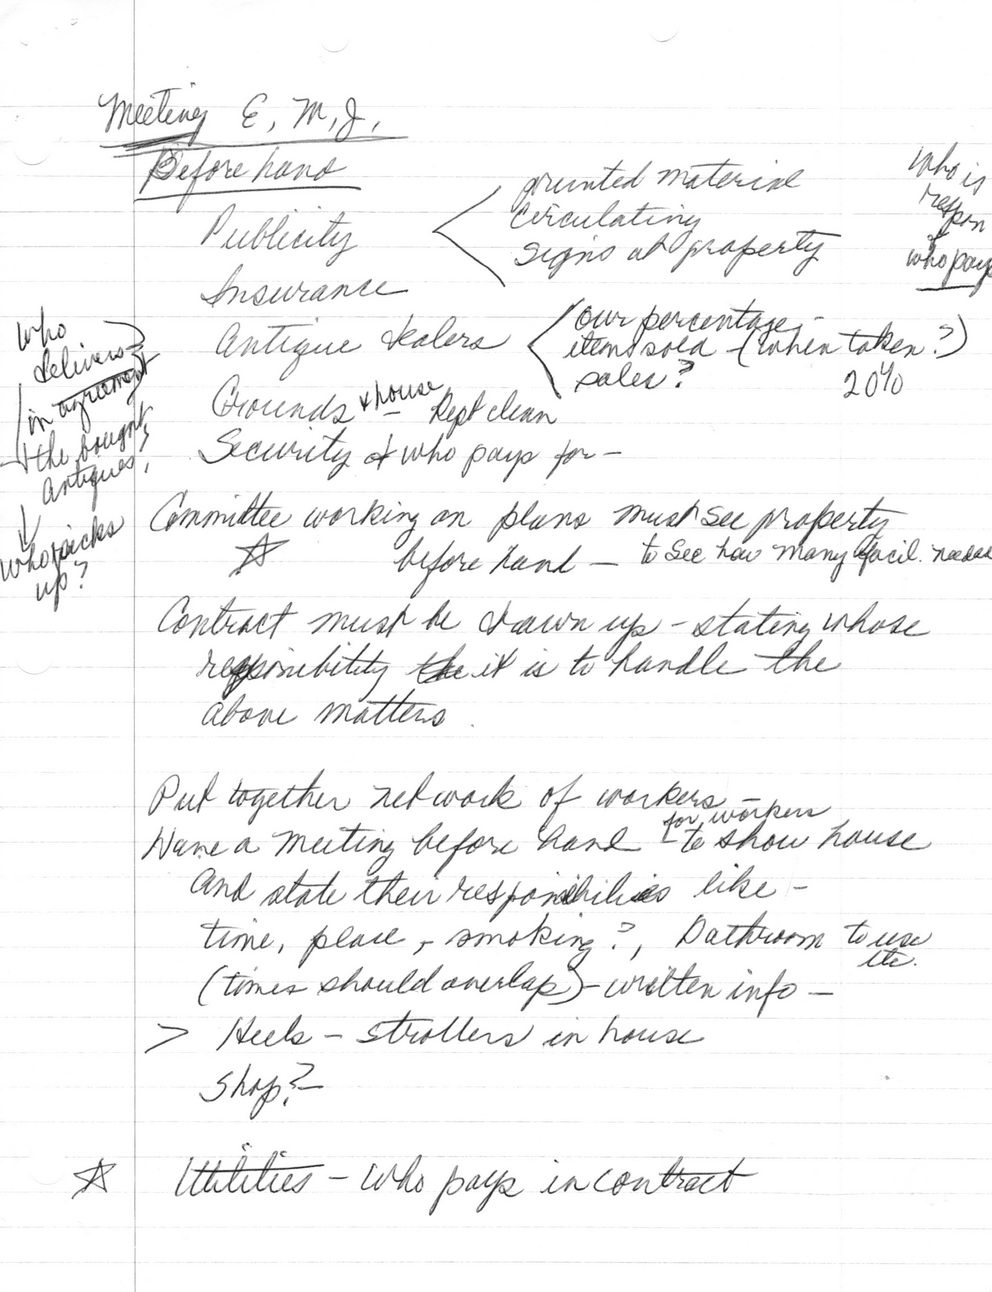 Meeting E, M, J,
Before hand
Publicity
printed material
circulating
signs at property
who is
respon
&
who pays
Insurance
Antique dealers
our percentage -
items sold - (when taken?)
sales? 20%
Grounds & house - kept clean
Security & who pays for -
who
delivers -
in agreement
the bought
antiques?
who picks
up?
Committee working on plans must see property
before hand - to see how many facil. needed
Contract must be drawn up - stating whose
responsibility it is to handle the
above matters.
Put together network of workers -
Have a meeting before hand for workers - to show house
and state their responsibilities like -
time, place, - smoking?, Bathroom to use
etc.
(times should overlap) - written info -
> Heels - strollers in house
Shop? -
Utilities - who pays in contract